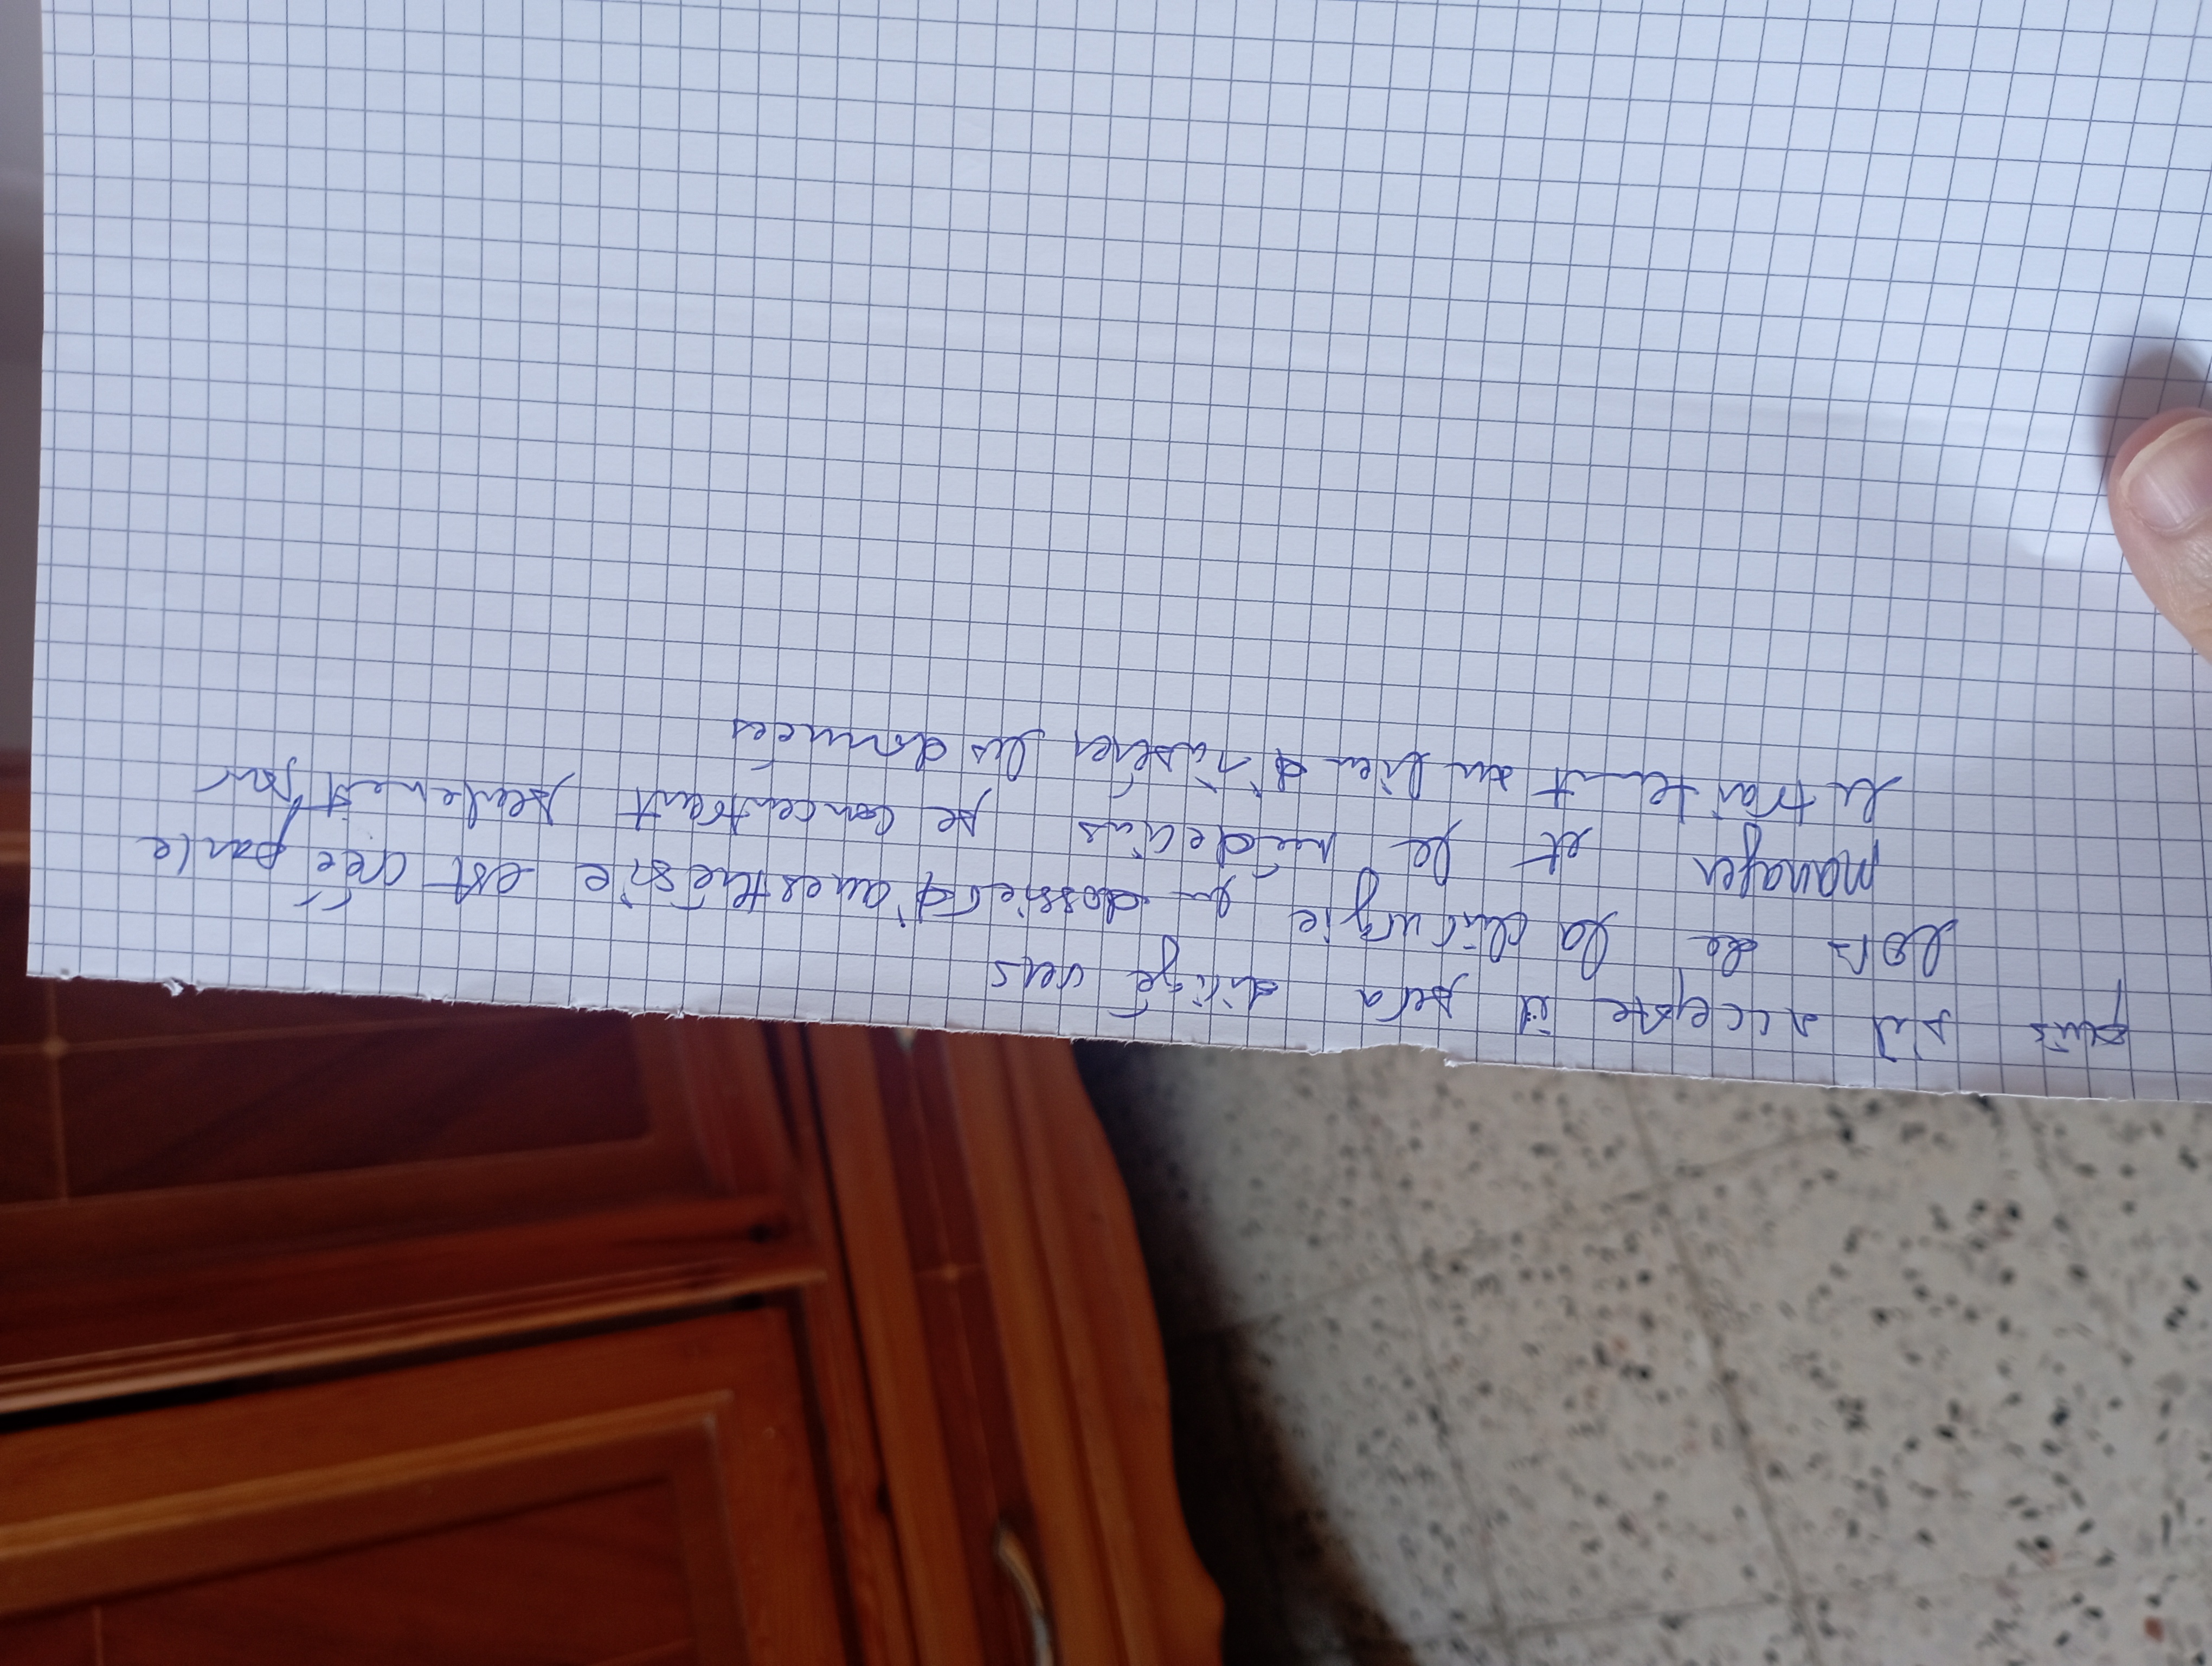 puis s'il accepte il sera dirigé vers
lors de la chirurgie un dossier d'anesthésie est crée par le
manager et le médecins se concentrant seulement sur
le traitement au lieu d'insérer les données